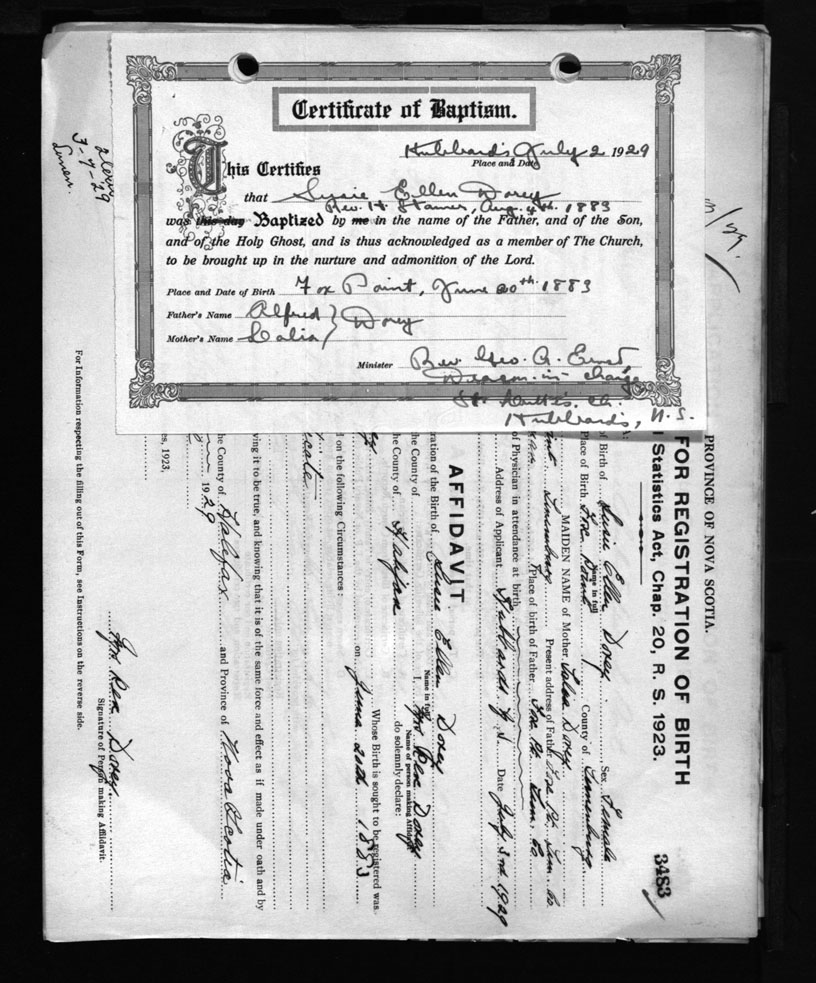 Certificate of Baptism.
Hubbards July 2 1929
Place and Date
This Certifies
that Susie Ellen Dorey
Rev. H. Stamer, Aug. 4th. 1883
was this day Baptized by me in the name of the Father, and of the Son,
and of the Holy Ghost, and is thus acknowledged as a member of The Church,
to be brought up in the nurture and admonition of the Lord.
Place and Date of Birth Fox Point, June 20th. 1883
Father's Name Alfred } Dorey
Mother's Name
Minister Rev. Geo. A. Ernst
Deacon-in-charge
St. Ch.
Hubbards, N.S.
3-7-29
PROVINCE OF NOVA SCOTIA.
FOR REGISTRATION OF BIRTH
Statistics Act, Chap. 20, R. S. 1923.
3483
of Birth of Susie Ellen Dorey Sex Female
Name in full
Place of Birth Fox Point County of Lunenburg
MAIDEN NAME of Mother Dorey
Lunenburg Present address of Father Fox Pt. Lun. Co.
Place of birth of Father Fox Pt. Lun. Co.
of Physician in attendance at birth
Address of Applicant Hubbards N.S. Date July 2nd 1929
AFFIDAVIT
ration of the Birth of Susie Ellen Dorey
Name in full
the County of I, Mrs Ben Dorey
Name of person making Affidavit
he County of Halifax do solemnly declare:
Whose Birth is sought to be registered was
on June 20th 1883
d on the following Circumstances:
ving it to be true, and knowing that it is of the same force and effect as if made under oath and by
he County of Halifax and Province of Nova Scotia
1929
es, 1923,
Mrs Ben Dorey.
Signature of Person making Affidavit.
For Information respecting the filling out of this Form, see Instructions on the reverse side.